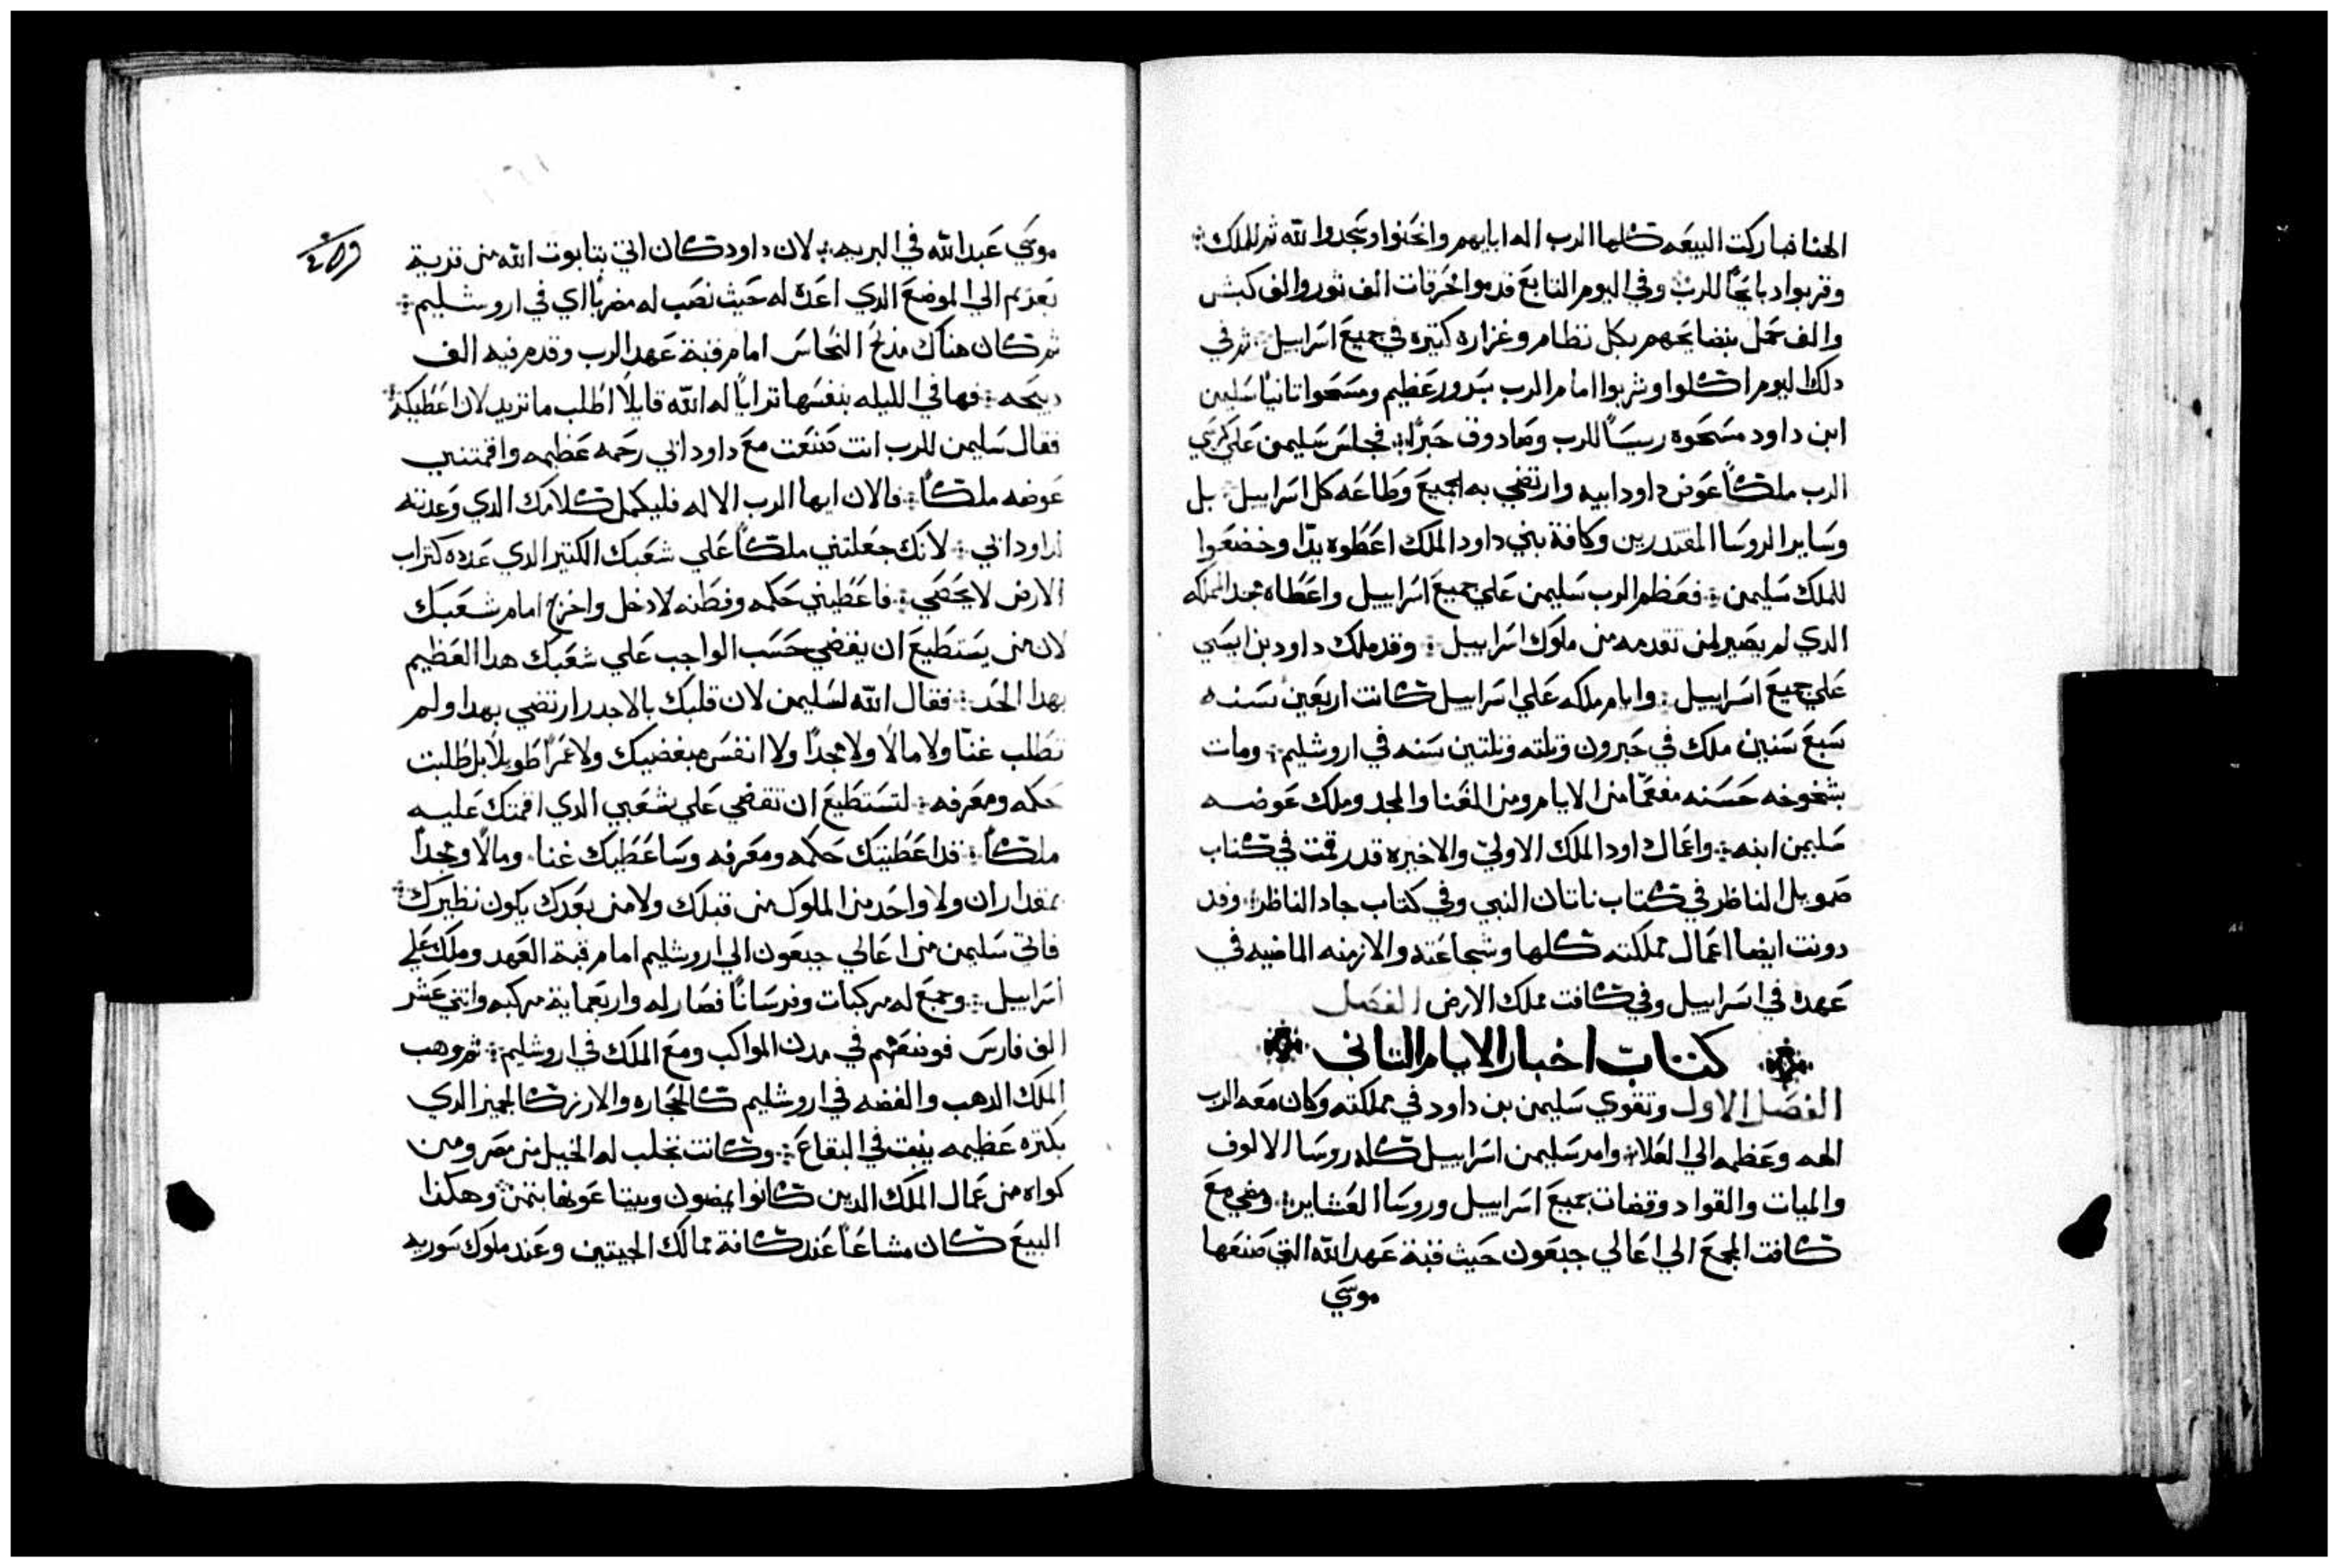 الهنا فباركت البيعه كلها الرب اله ابايهم وانحنوا وسجدوا لله ثم للملك
وقربوا دبايحًا للرب وفي اليوم التابع قدموا محرقات الف ثور والف كبش
والف حمل بنضايحهم بكل نظام وغزاره كتيره في جميع اسراييل ثم في
دلك اليوم اكلوا وشربوا امام الرب بسرور عظيم ومسحوا تانيًا سليمن
ابن داود مسحوه ريسًا للرب وصادوق حبرًا فجلس سليمن علي كرسي
الرب ملكًا عوض داود ابيه وارتضي به الجميع وطاعه كل اسراييل بل
وساير الروسا المقتدرين وكافة بني داود الملك اعطوه يدًا وخضعوا
للملك سليمن فعظم الرب سليمن علي جميع اسراييل واعطاه مجد المملكه
الدي لم يصير لمن تقدمه من ملوك اسراييل وقد ملك داود بن ايسي
علي جميع اسراييل وايام ملكه علي اسراييل كانت اربعين سنه
سبع سنين ملك في حبرون وتلته وتلتين سنه في اروشليم ومات
بشيخوخه حسنه مفعمًا من الايام ومن الغنا والمجد وملك عوضه
سليمن ابنه واعمال داود الملك الاولي والاخيره قد رقمت في كتاب
صمويل الناظر في كتاب ناتان النبي وفي كتاب جاد الناظر وقد
دونت ايضا اعمال مملكته كلها وشجاعته والازمنه الماضيه في
عهده في اسراييل وفي كافت مملك الارض الفصل
كتاب اخبار الايام التاني
الفصل الاول وتقوي سليمن بن داود في مملكته وكان معه الرب
الهه وعظمه الي العلا وامر سليمن اسراييل كله روسا الالوف
والميات والقواد وقضات جميع اسراييل وروسا العشاير ومضي مع
كافت المجمع الي اعالي جبعون حيث قبة عهد الله التي صنعها
موسي
موسي عبد الله في البريه لان داود كان اتي بتابوت الله من قرية
يعريم الي الموضع الدي اعده له حيث نصب له مضربًا اي في اروشليم
ثم كان هناك مدبح النحاس امام قبة عهد الرب وقدم فيه الف
دبيحه فها في الليله بنفسها ترايا له الله قايلًا اطلب ما تريد لان اعطيكه
فقال سليمن للرب انت صنعت مع داود ابي رحمه عظيمه واقمتني
عوضه ملكًا فالان ايها الرب الاله فليكمل كلامك الدي وعدته
لداود ابي لانك جعلتني ملكًا علي شعبك الكتير الدي عدده كتراب
الارض لا يحصي فاعطيني حكمه وفطنه لادخل واخرج امام شعبك
لان من يستطيع ان يقضي حسب الواجب علي شعبك هدا العظيم
بهدا الحد فقال الله لسليمن لان قلبك بالاجدر ارتضي بهدا ولم
تطلب غنًا ولا مالًا ولا مجدًا ولا انفس مبغضيك ولا عمرًا طويلًا بل طلبت
حكمه ومعرفه لتستطيع ان تقضي علي شعبي الدي اقمتك عليه
ملكًا قد اعطيتك حكمه ومعرفه وساعطيك غنا ومالًا ومجدًا
بمقدار ان ولا واحد من الملوك من قبلك ولا من بعدك يكون نظيرك
فاتي سليمن من اعالي جبعون الي اروشليم امام قبة العهد وملك علي
اسراييل وجمع له مركبات وفرسانًا فصار له واربعماية مركبه واتني عشر
الف فارس فوضعهم في مدن المواكب ومع الملك في اروشليم ثم وهب
الملك الدهب والفضه في اروشليم كالحجاره والارز كالجميز الدي
بكتره عظيمه ينبت في البقاع وكانت تجلب له الخيل من مصر ومن
كواه من عمال الملك الدين كانوا يمضون ويبتاعونها بتمن وهكذا
البيع كان مشاعًا عند كافة ممالك الحيتيين وعند ملوك سوريه